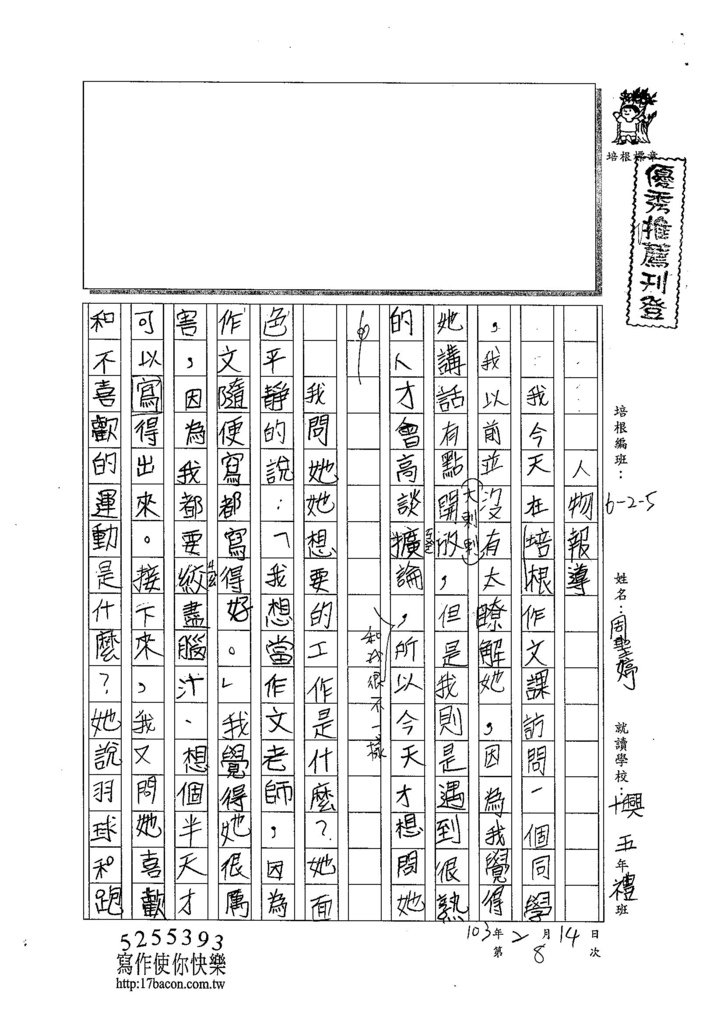 培根標章
優秀推薦刊登
培根編班：6-2-5
姓名：周聖婷
就讀學校：興五年禮班
103年2月14日
第8次
人物報導
我今天在培根作文課訪問一個同學
，我以前並沒有太瞭解她，因為我覺得
她講話有點開放，但是我則是遇到很熟
大剌剌
的人才會高談擴論，所以今天才想問她
和我很不一樣
我問她她想要的工作是什麼？她面
色平靜的說：「我想當作文老師，因為
作文隨便寫都寫得好。」我覺得她很厲
害，因為我都要絞盡腦汁、想個半天才
可以寫得出來。接下來，我又問她喜歡
和不喜歡的運動是什麼？她說羽球和跑
5255393
寫作使你快樂
http:17bacon.com.tw